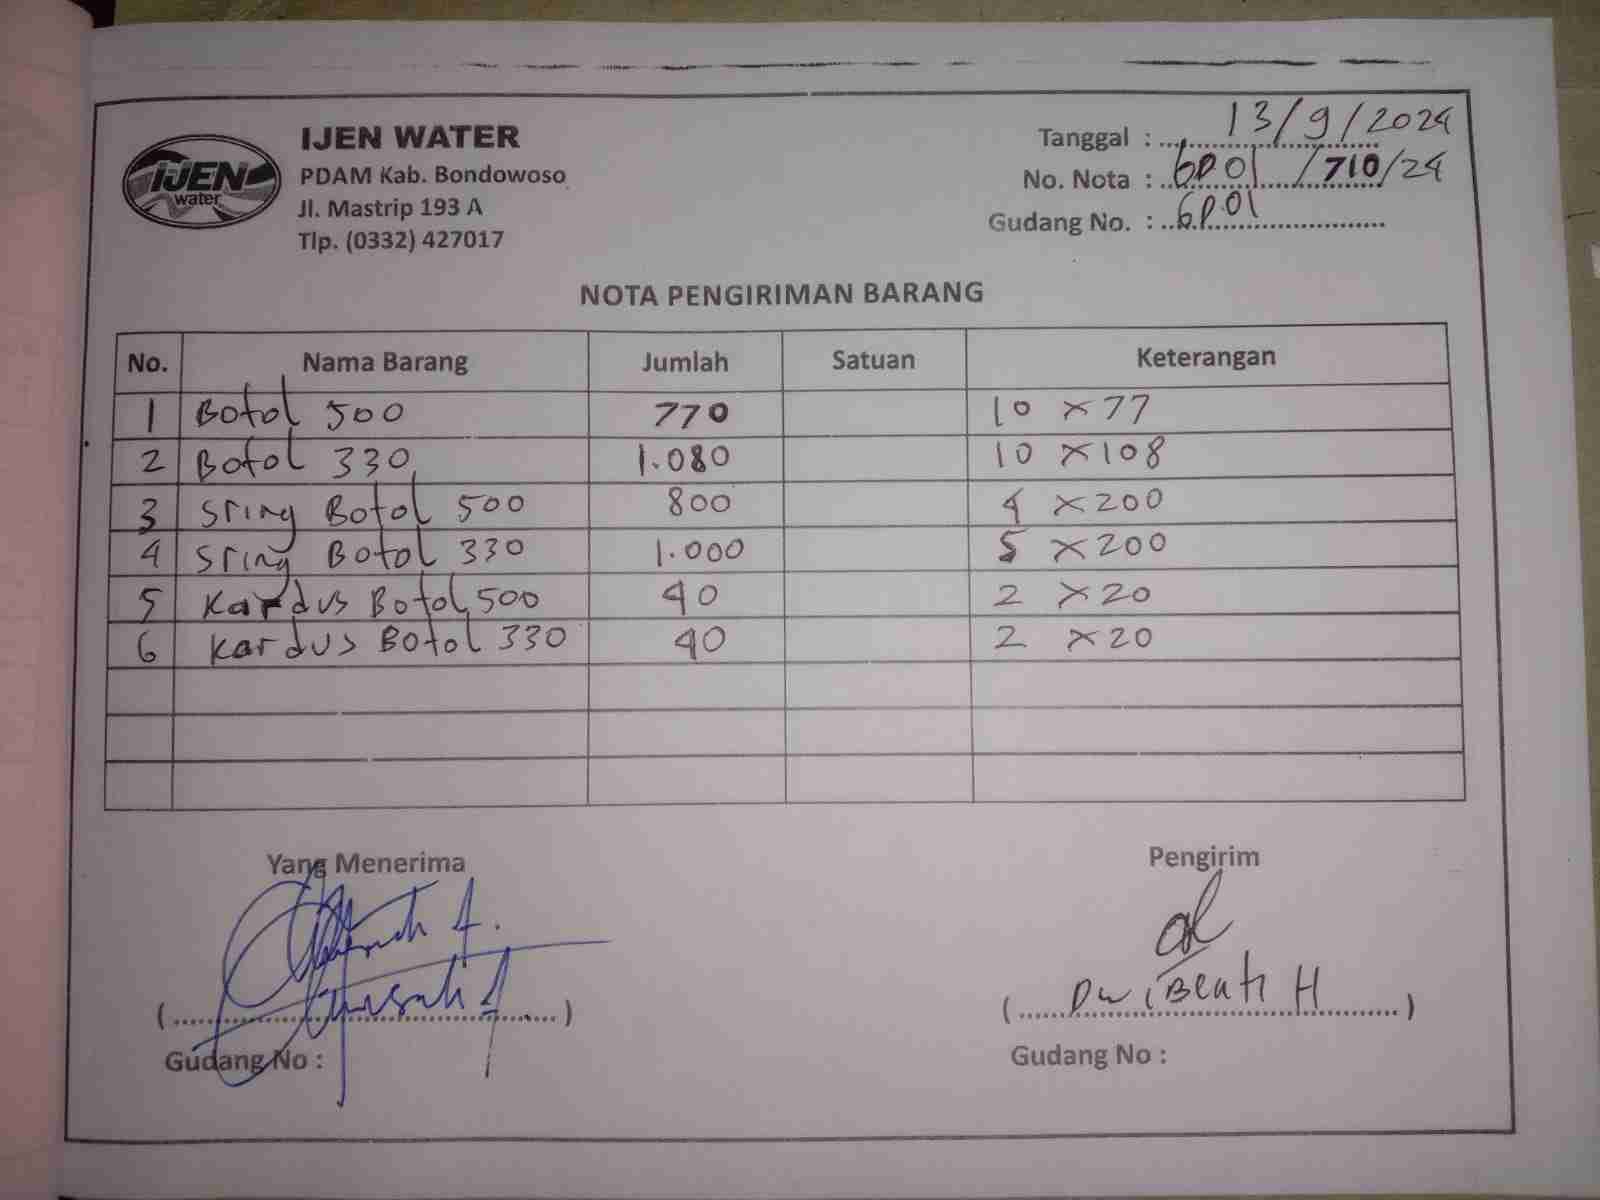 IJEN WATER
PDAM Kab. Bondowoso
Jl. Mastrip 193 A
Tlp. (0332) 427017
IJEN
water
Tanggal : 13/9/2024
No. Nota : GP01 /710/24
Gudang No. : GP.01
NOTA PENGIRIMAN BARANG
No. Nama Barang Jumlah Satuan Keterangan
1 Botol 500 770 10 x 77
2 Botol 330 1.080 10 x 108
3 Sring Botol 500 800 4 x 200
4 Sring Botol 330 1.000 5 x 200
5 Kardus Botol 500 40 2 x 20
6 Kardus Botol 330 40 2 x 20
Yang Menerima Pengirim
( ) ( Dwi H )
Gudang No : Gudang No :